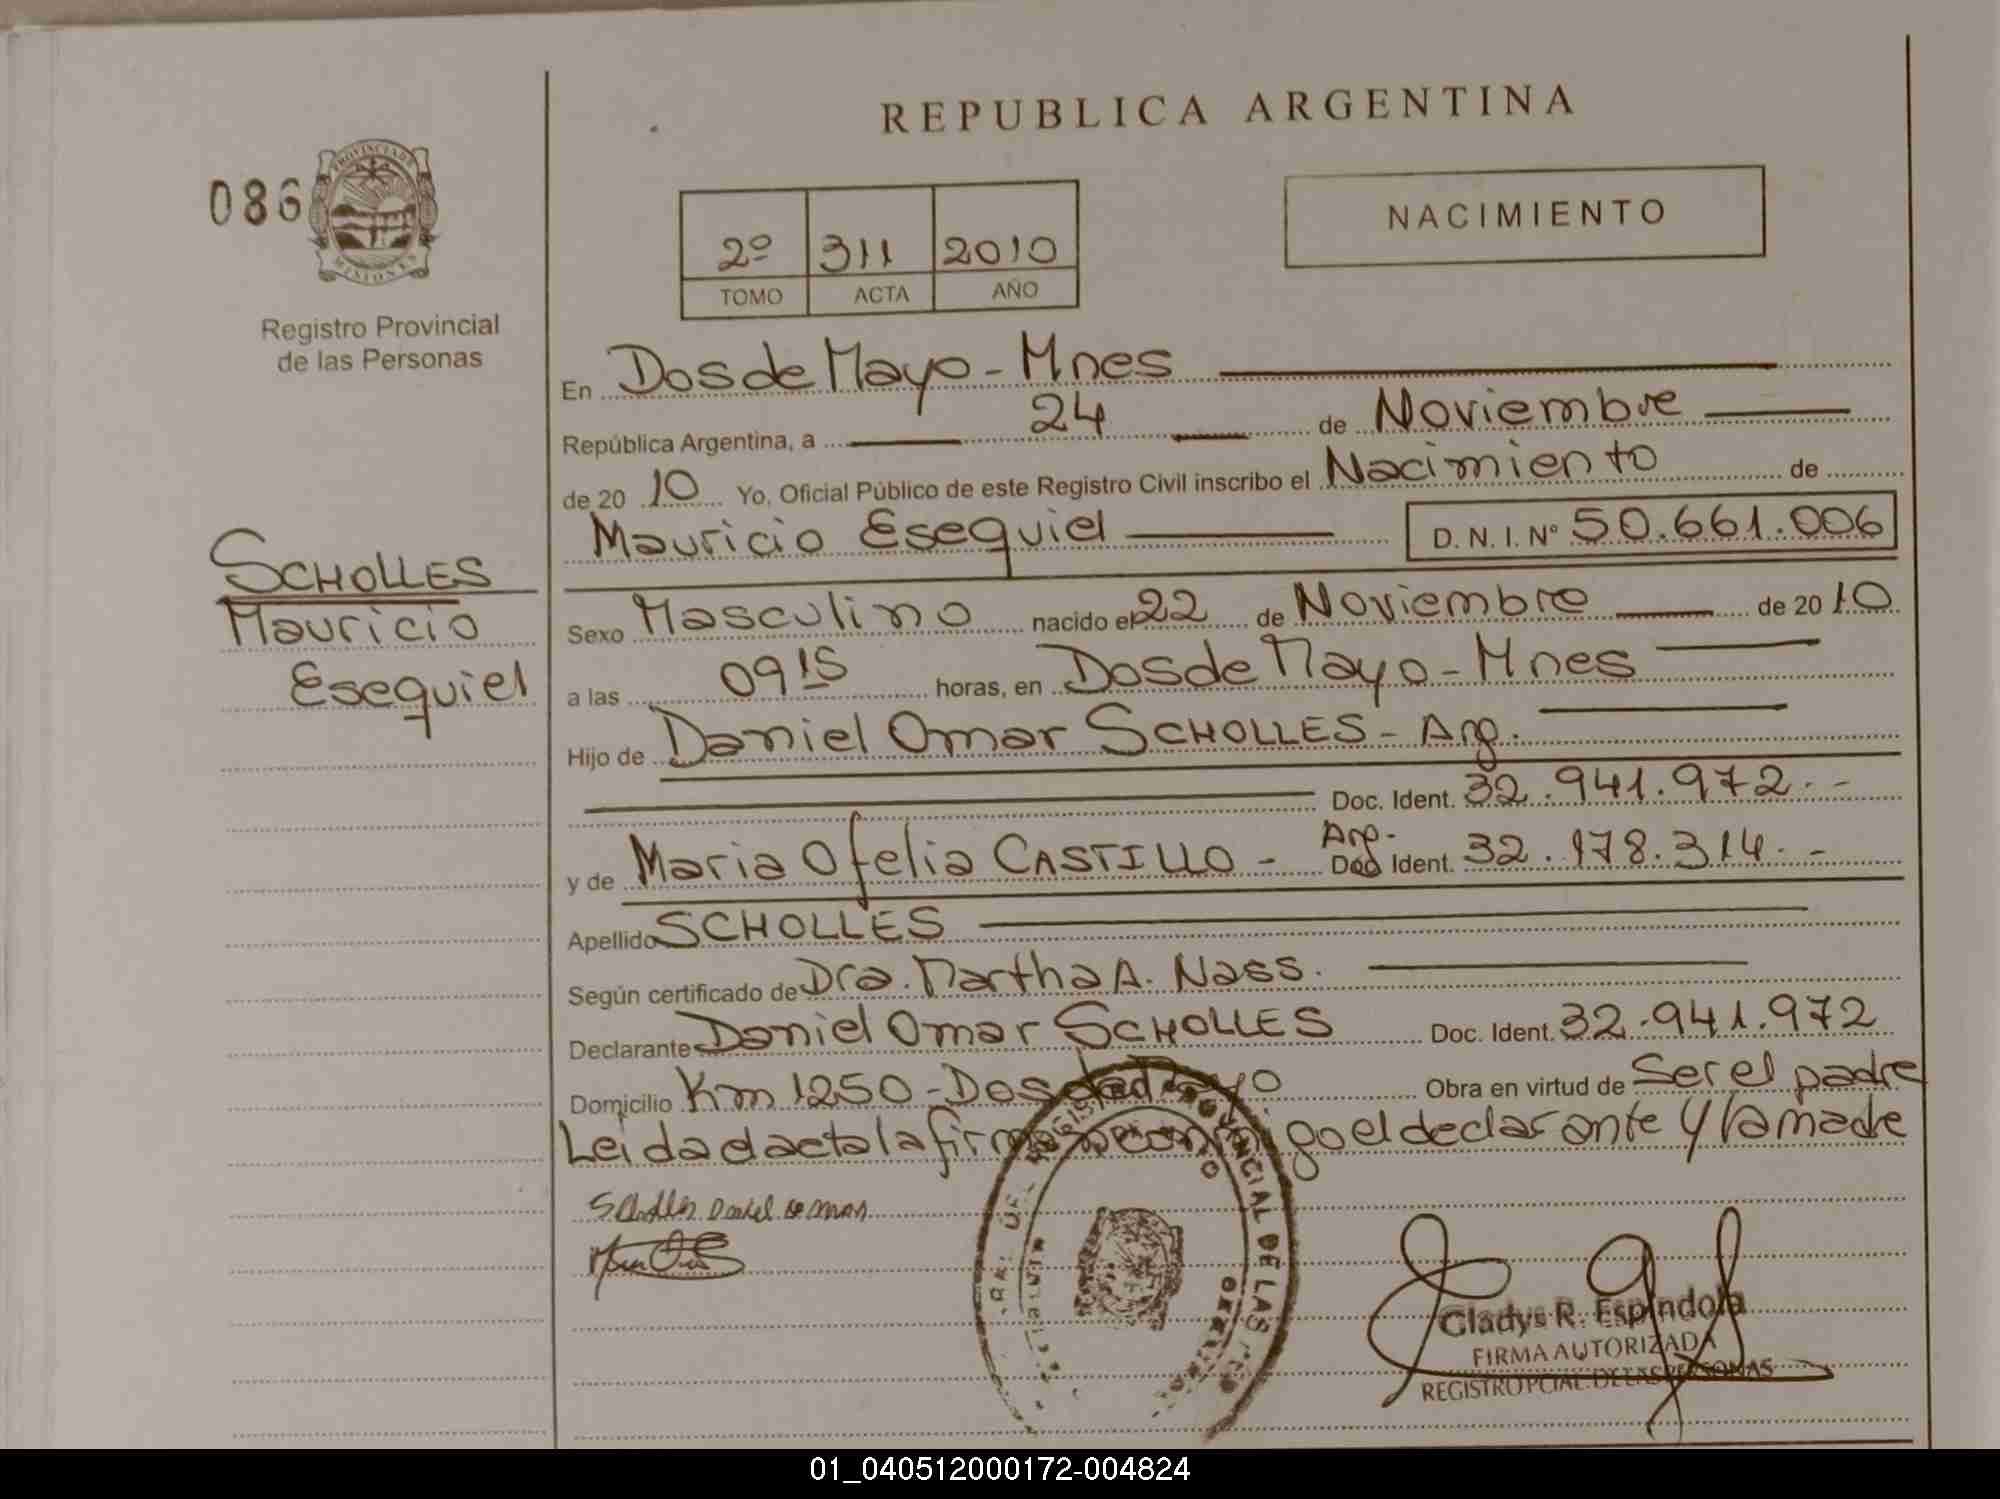 REPUBLICA ARGENTINA
086
PROVINCIA DE
MISIONES
Registro Provincial
de las Personas
2º 311 2010
TOMO ACTA AÑO
NACIMIENTO
En Dos de Mayo - Mnes
República Argentina, a 24 de Noviembre
de 20 10 Yo, Oficial Público de este Registro Civil inscribo el Nacimiento de
Mauricio Esequiel D. N. I. Nº 50.661.006
SCHOLLES
Mauricio
Esequiel
Sexo Masculino nacido el 22 de Noviembre de 20 10
a las 09 15 horas, en Dos de Mayo - Mnes
Hijo de Daniel Omar SCHOLLES - Arg.
Doc. Ident. 32.941.972.-
y de Maria Ofelia CASTILLO - Arg- Doc Ident. 32.178.314.-
Apellido SCHOLLES
Según certificado de Dra. Martha A. Nass.
Declarante Daniel Omar SCHOLLES Doc. Ident. 32.941.972
Domicilio Km 1250 - Dos de Mayo Obra en virtud de Ser el padre
Leida el acta la firman conmigo el declarante y la madre
Scholles Daniel Omar
PROVINCIAL DE LAS
Gladys R. Espindola
FIRMA AUTORIZADA
REGISTRO PCIAL. DE LAS PERSONAS
01_040512000172-004824